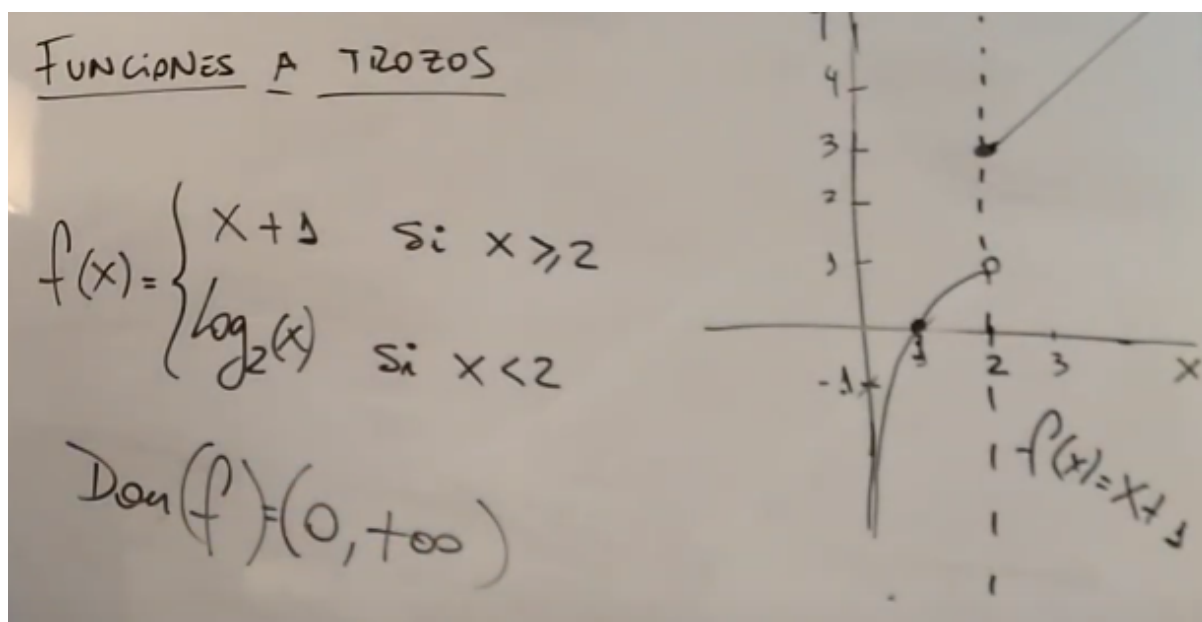 FUNCIONES A TROZOS
f(x)= { x+1 si x⩾2
log₂(x) si x<2
Dom(f)=(0,+∞)
4
3
2
1
-1
1 2 3 x
f(x)=x+1